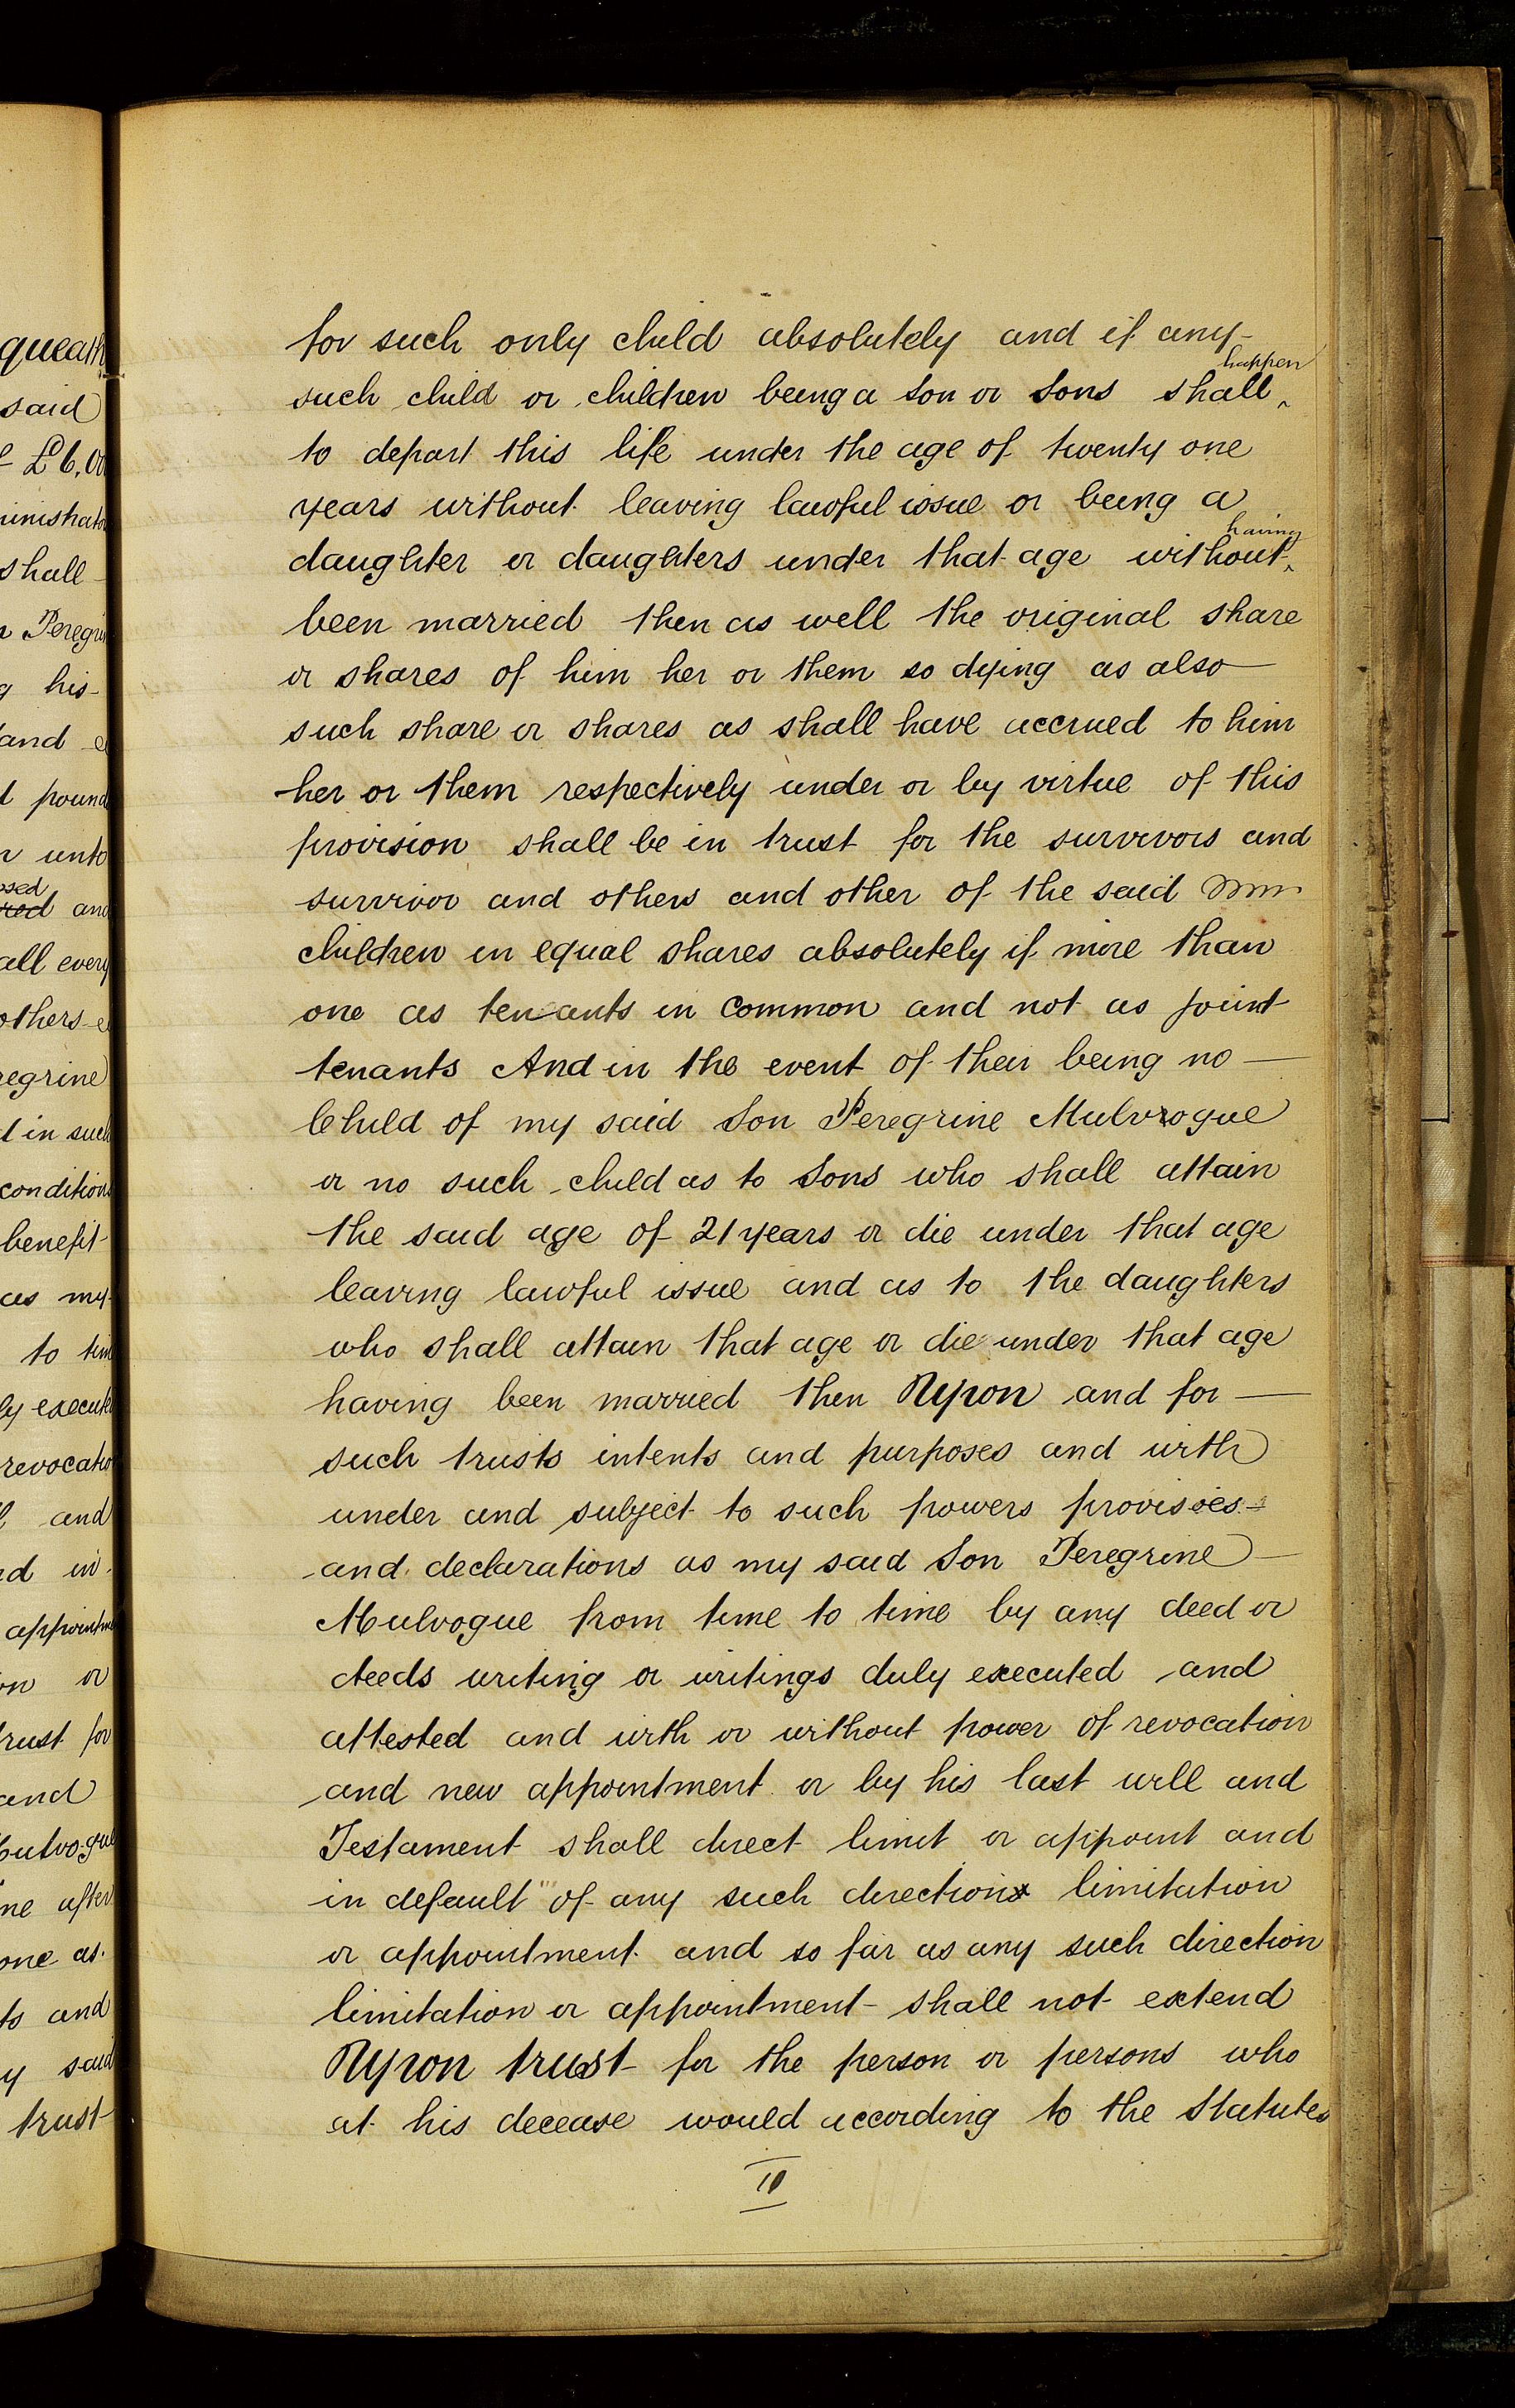 queath
said
£6,00
ministrato
shall
Peregrin
his
and e
pound
unto
osed
red and
all every
others e
regrine
in such
conditions
benefit
as my
to time
ly execute
revocatio
and
in
appointme
on or
trust for
and
Mulvogue
ne after
one as
ts and
y said
trust
for such only child absolutely and if any
happen
such child or children being a son or Sons shall ^
to depart this life under the age of twenty one
years without leaving lawful issue or being a
having
daughter or daughters under that age without ^
been married then as well the original share
or shares of him her or them so dying as also
such share or shares as shall have accrued to him
her or them respectively under or by virtue of this
provision shall be in trust for the survivors and
survivor and others and other of the said
children in equal shares absolutely if more than
one as tenants in common and not as joint
tenants And in the event of their being no
Child of my said Son Peregrine Mulvrogue
or no such child as to Sons who shall attain
the said age of 21 years or die under that age
leaving lawful issue and as to the daughters
who shall attain that age or die under that age
having been married then Upon and for
such trusts intents and purposes and with
under and subject to such powers provisoes
and declarations as my said Son Peregrine
Mulvogue from time to time by any deed or
deeds writing or writings duly executed and
attested and with or without power of revocation
and new appointment or by his last will and
Testament shall direct limit or appoint and
in default of any such direction limitation
or appointment and so far as any such direction
limitation or appointment shall not extend
Upon trust for the person or persons who
at his decease would according to the Statutes
10